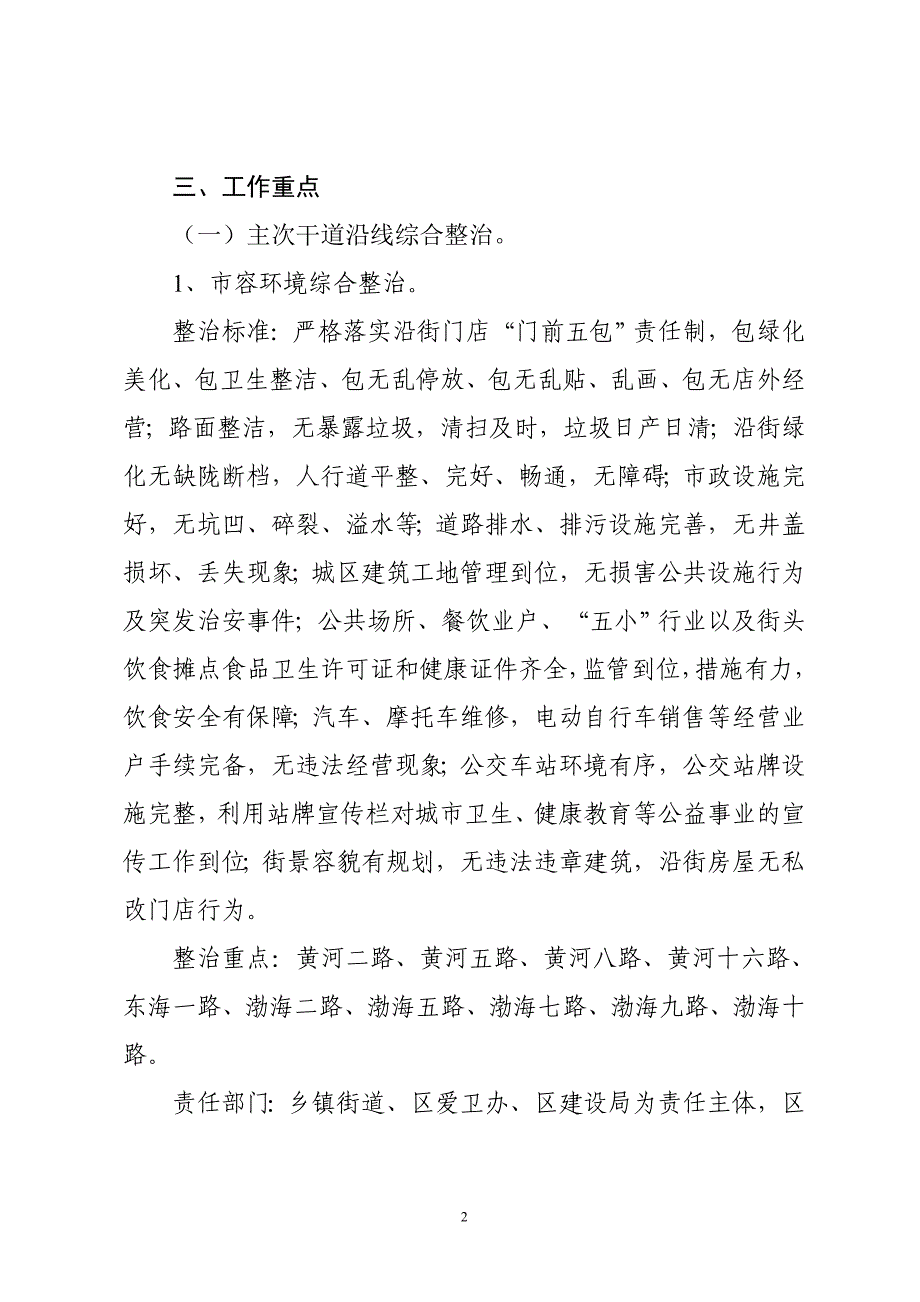 三、工作重点
（一）主次干道沿线综合整治。
1、市容环境综合整治。
整治标准：严格落实沿街门店“门前五包”责任制，包绿化
美化、包卫生整洁、包无乱停放、包无乱贴、乱画、包无店外经
营；路面整洁，无暴露垃圾，清扫及时，垃圾日产日清；沿街绿
化无缺陇断档，人行道平整、完好、畅通，无障碍；市政设施完
好，无坑凹、碎裂、溢水等；道路排水、排污设施完善，无井盖
损坏、丢失现象；城区建筑工地管理到位，无损害公共设施行为
及突发治安事件；公共场所、餐饮业户、“五小”行业以及街头
饮食摊点食品卫生许可证和健康证件齐全，监管到位，措施有力，
饮食安全有保障；汽车、摩托车维修，电动自行车销售等经营业
户手续完备，无违法经营现象；公交车站环境有序，公交站牌设
施完整，利用站牌宣传栏对城市卫生、健康教育等公益事业的宣
传工作到位；街景容貌有规划，无违法违章建筑，沿街房屋无私
改门店行为。
整治重点：黄河二路、黄河五路、黄河八路、黄河十六路、
东海一路、渤海二路、渤海五路、渤海七路、渤海九路、渤海十
路。
责任部门：乡镇街道、区爱卫办、区建设局为责任主体，区
2